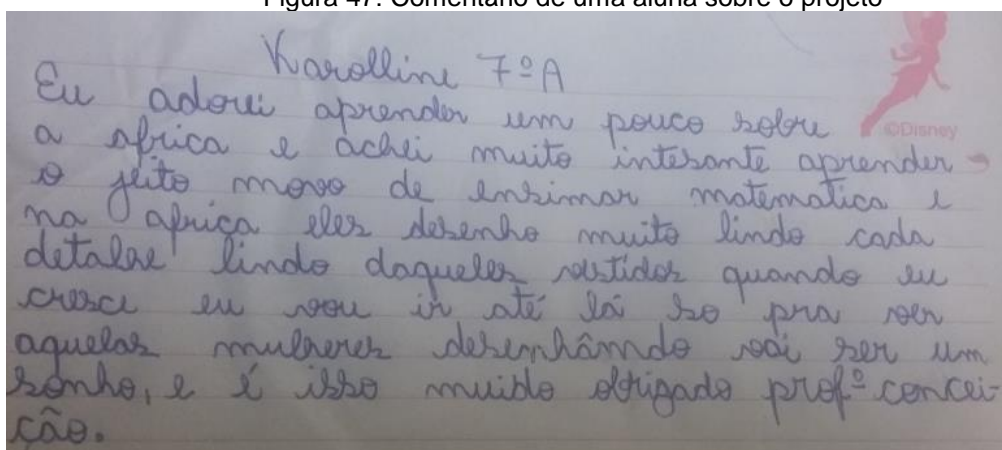 Figura 47: Comentário de uma aluna sobre o projeto
Karolline 7ºA
Eu adorei aprender um pouco sobre
©Disney
a africa e achei muito intesante aprender
o jeito movo de ensimar matematica e
na africa eles desenho muito lindo cada
detalhe lindo daqueles vestidos quando eu
cresce eu vou ir até lá so pra ver
aquelas mulheres desenhâmdo vai ser um
sonho, e é isso muido obrigado profº concei-
ção.